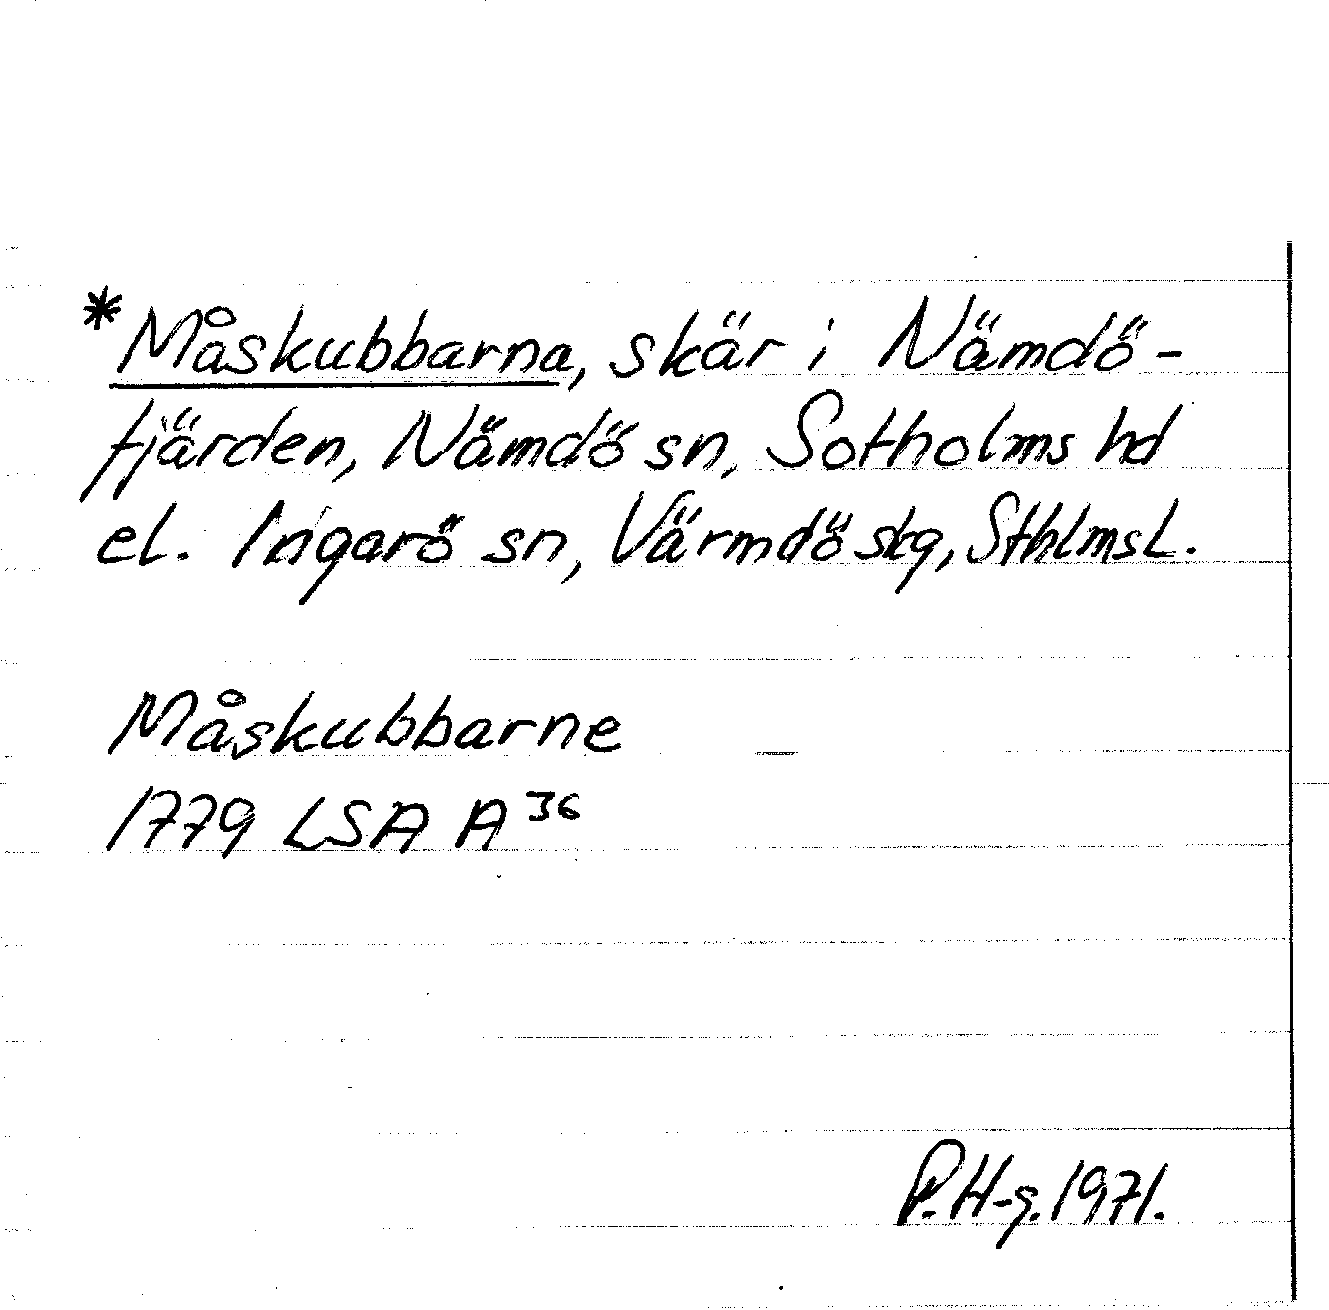 *Måskubbarna, skär i Nämdö-
fjärden, Nämdö sn, Sotholms hd
el. Ingarö sn, Värmdö skg, SthlmsL.
Måskubbarne
1779 LSA A³⁶
P. H-g. 1971.